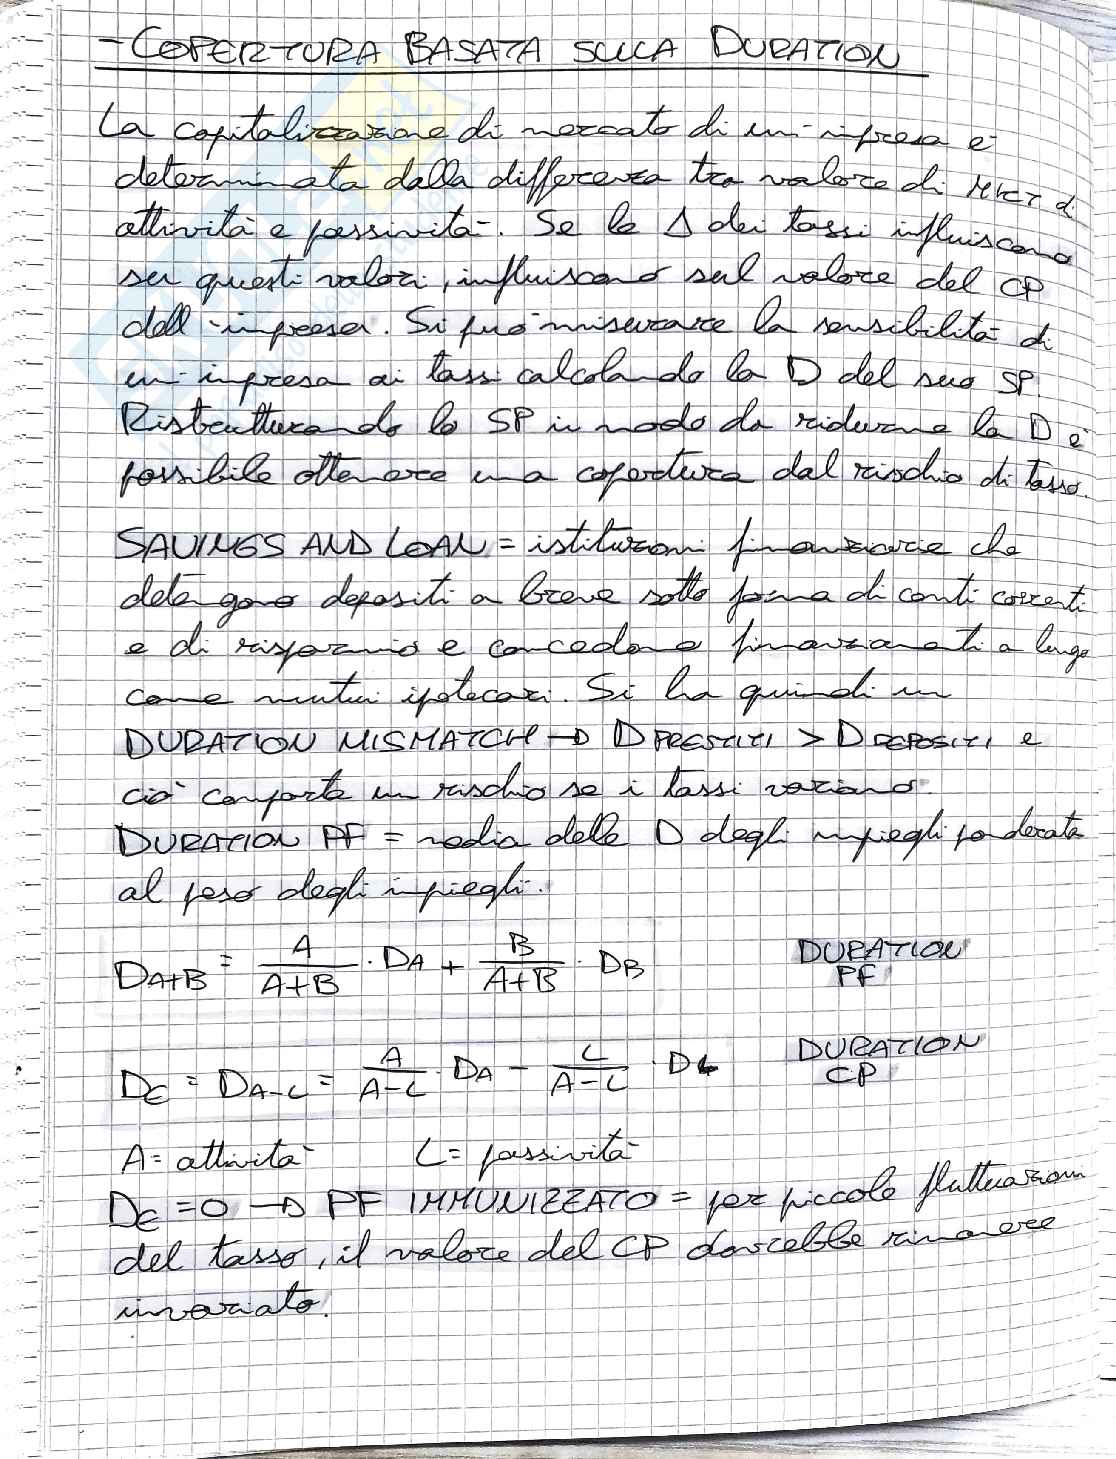 - COPERTURA BASATA SULLA DURATION
La capitalizzazione di mercato di un'impresa è
determinata dalla differenza tra valore di MKT di
attività e passività. Se le Δ dei tassi influiscono
su questi valori, influiscono sul valore del CP
dell'impresa. Si può misurare la sensibilità di
un'impresa ai tassi calcolando la D del suo SP.
Ristrutturando lo SP in modo da ridurne la D è
possibile ottenere una copertura dal rischio di tasso.
SAVINGS AND LOAN = istituzioni finanziarie che
detengono depositi a breve sotto forma di conti correnti
e di risparmio e concedono finanziamenti a lungo
come mutui ipotecari. Si ha quindi un
DURATION MISMATCH → D PRESTITI > D DEPOSITI e
ciò comporta un rischio se i tassi variano.
DURATION PF = media delle D degli impieghi ponderata
al peso degli impieghi.
DA+B = A/(A+B) · DA + B/(A+B) · DB DURATION PF
DE = DA-L = A/(A-L) · DA - L/(A-L) · DL DURATION CP
A = attività L = passività
DE = 0 → PF IMMUNIZZATO = per piccole fluttuazioni
del tasso, il valore del CP dovrebbe rimanere
invariato.